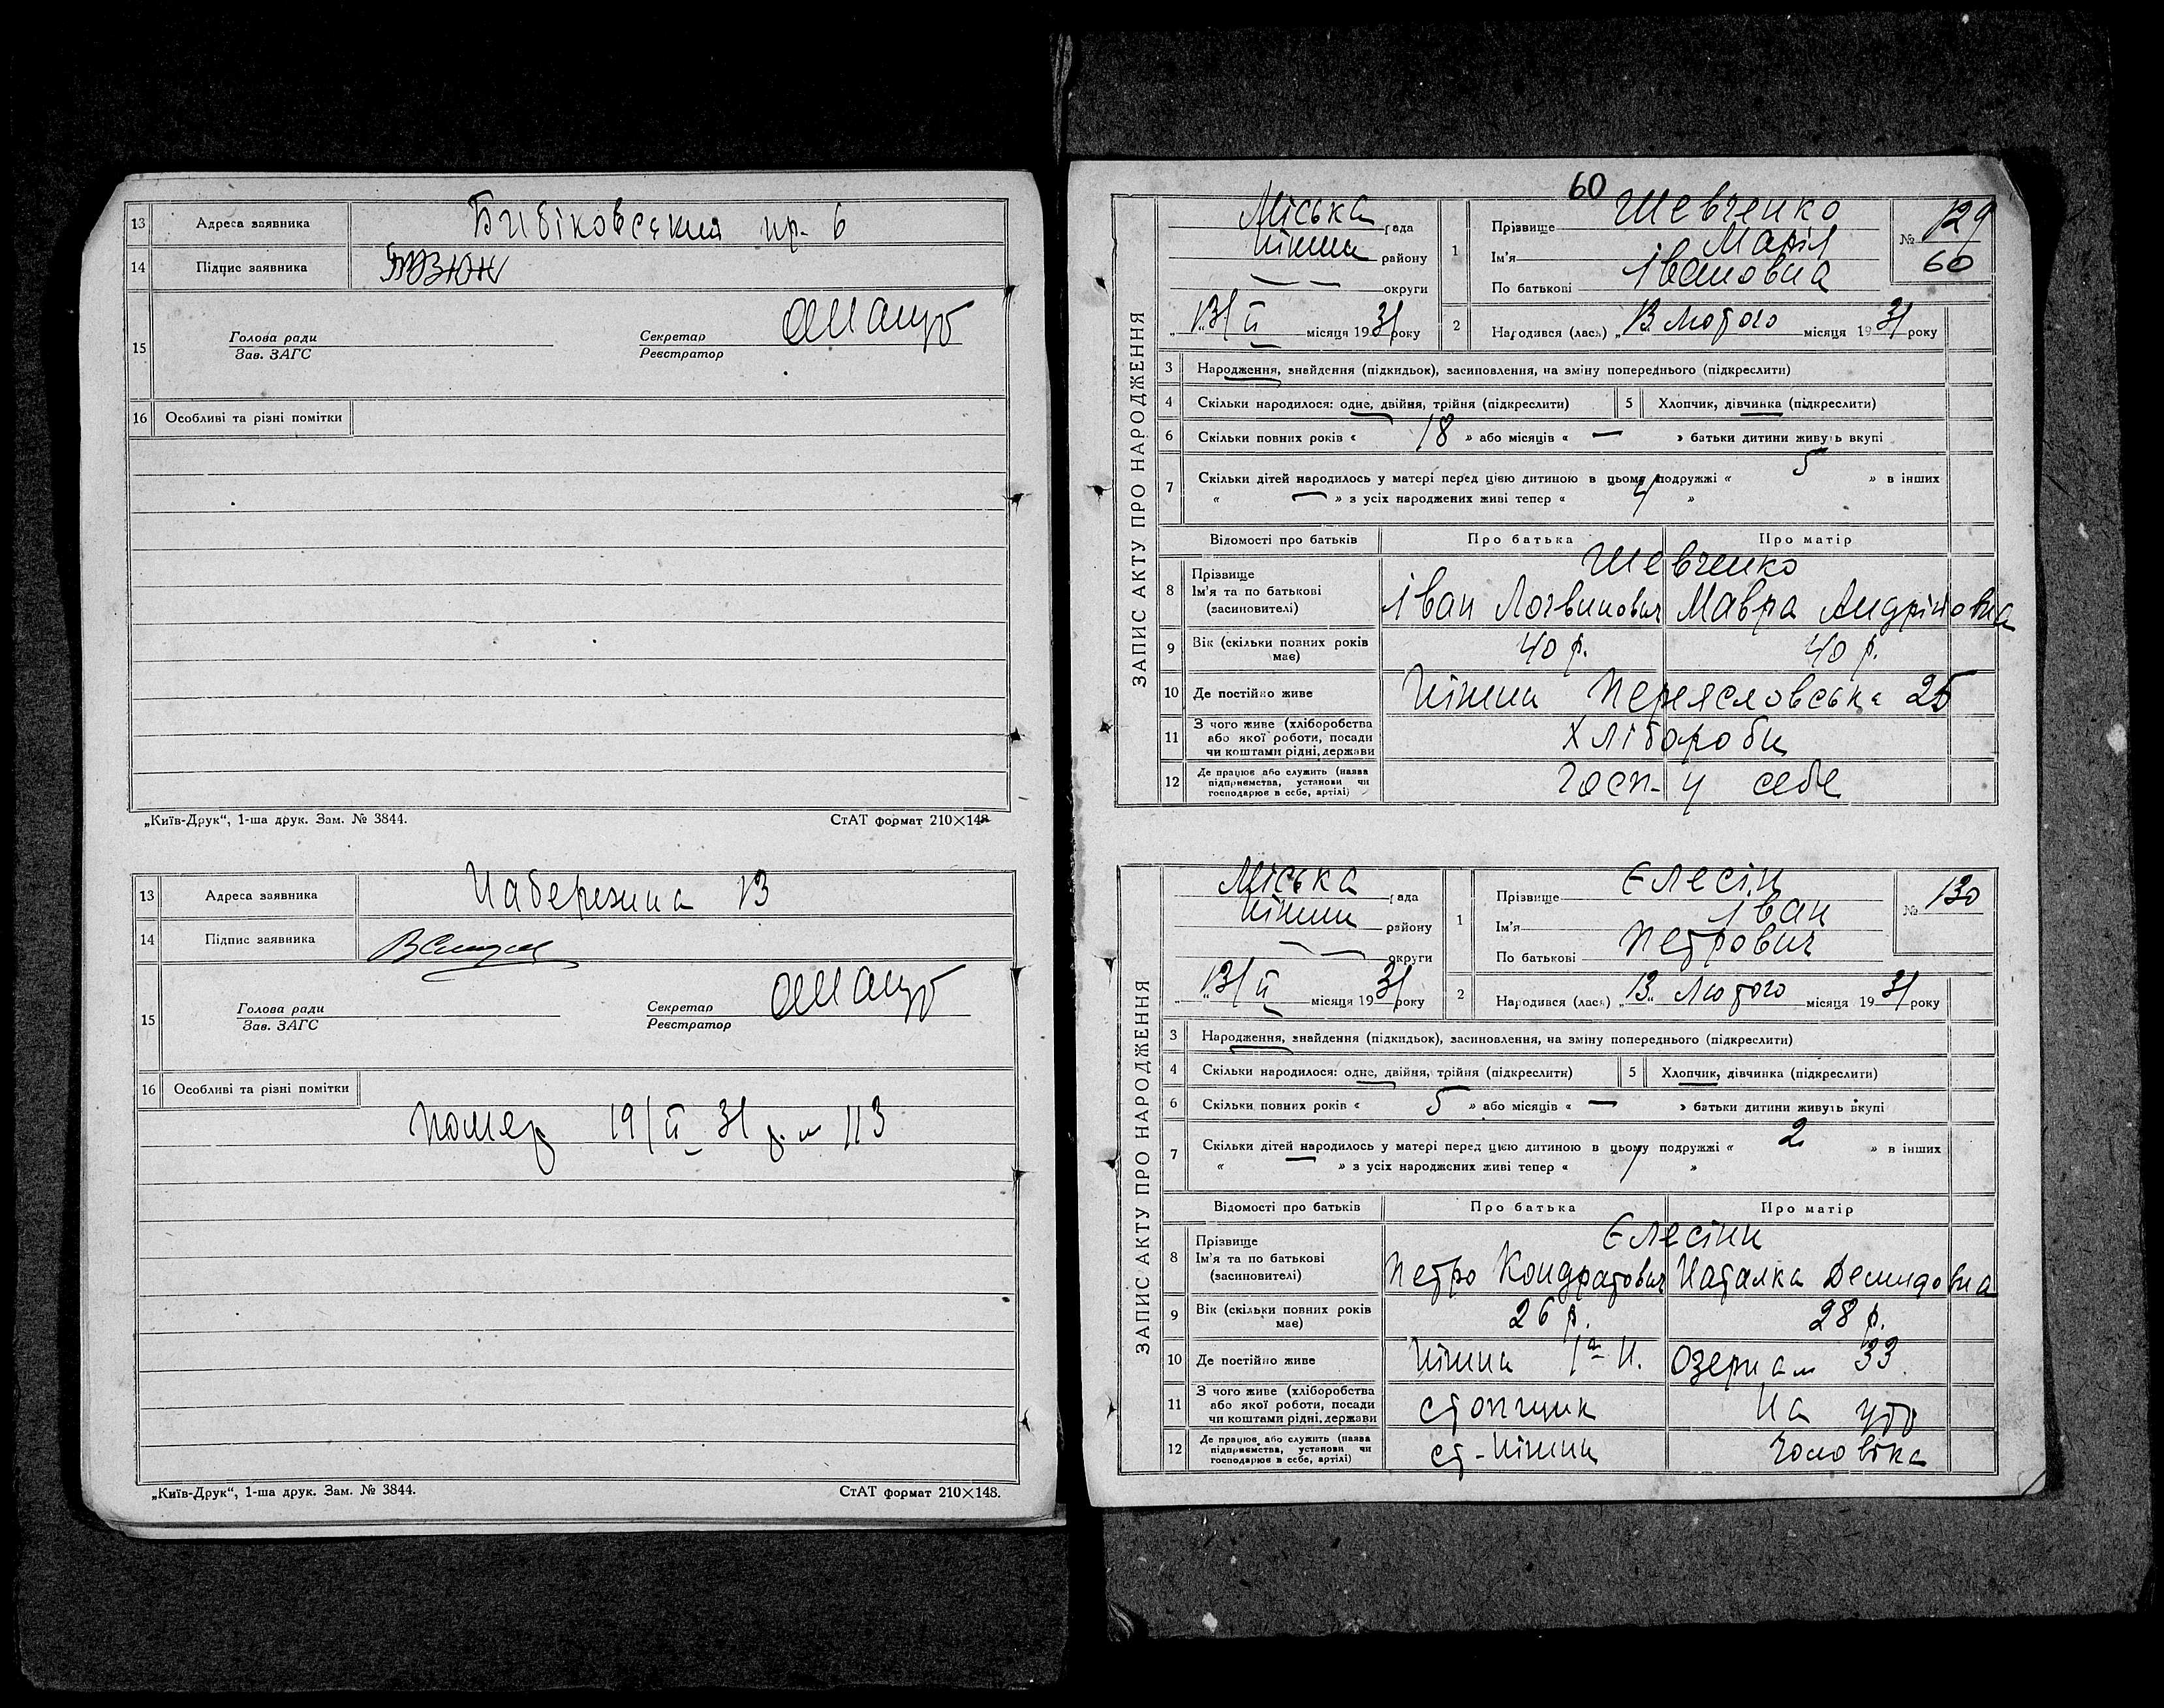 13 Адреса заявника Бибіковський пр. 6
14 Підпис заявника
15 Голова ради Секретар
Зав. ЗАГС Реєстратор
16 Особливі та різні помітки
„Київ-Друк“, 1-ша друк. Зам. № 3844. СтАТ формат 210×148
13 Адреса заявника Набережна 13
14 Підпис заявника
15 Голова ради Секретар
Зав. ЗАГС Реєстратор
16 Особливі та різні помітки
помер 19/II 31 р. 113
„Київ-Друк“, 1-ша друк. Зам. № 3844. СтАТ формат 210×148.
60
ЗАПИС АКТУ ПРО НАРОДЖЕННЯ
Міська рада
Ніжин району
— — округи
„13/II місяця 1931 року
1 Прізвище Шевченко
Ім'я Марія
По батькові Івановна
№ 129
60
2 Народився (лась) „13 лютого місяця 1931 року
3 Народження, знайдення (підкидьок), засиновлення, на зміну попереднього (підкреслити)
4 Скільки народилося: одне, двійня, трійня (підкреслити) 5 Хлопчик, дівчинка (підкреслити)
6 Скільки повних років « 18 » або місяців « — » батьки дитини живуть вкупі
7 Скільки дітей народилось у матері перед цією дитиною в цьому подружжі « 5 » в інших
« — » з усіх народжених живі тепер « 4 »
Відомості про батьків Про батька Про матір
8 Прізвище Шевченко
Ім'я та по батькові (засиновителі) Іван Логвинович Мавра Андріівна
9 Вік (скільки повних років має) 40 р. 40 р.
10 Де постійно живе Ніжин Переясловська 25
11 З чого живе (хліборобства або якої роботи, посади чи коштами рідні, держави Хлібороби
12 Де працює або служить (назва підприємства, установи чи господарює в себе, артілі) госп- у себе
ЗАПИС АКТУ ПРО НАРОДЖЕННЯ
Міська рада
Ніжин району
— — округи
„13/II місяця 1931 року
1 Прізвище Єлесін
Ім'я Іван
По батькові Петрович
№ 130
2 Народився (лась) „13“ лютого місяця 1931 року
3 Народження, знайдення (підкидьок), засиновлення, на зміну попереднього (підкреслити)
4 Скільки народилося: одне, двійня, трійня (підкреслити) 5 Хлопчик, дівчинка (підкреслити)
6 Скільки повних років « 5 » або місяців « — » батьки дитини живуть вкупі
7 Скільки дітей народилось у матері перед цією дитиною в цьому подружжі « 2 » в інших
« — » з усіх народжених живі тепер « 1 »
Відомості про батьків Про батька Про матір
8 Прізвище Єлесіни
Ім'я та по батькові (засиновителі) Петро Кондратович Наталка Демидовна
9 Вік (скільки повних років має) 26 р. 28 р.
10 Де постійно живе Ніжин 1а Н. Озерна 33.
11 З чого живе (хліборобства або якої роботи, посади чи коштами рідні, держави на утр
12 Де працює або служить (назва підприємства, установи чи господарює в себе, артілі) ст-Ніжин чоловіка